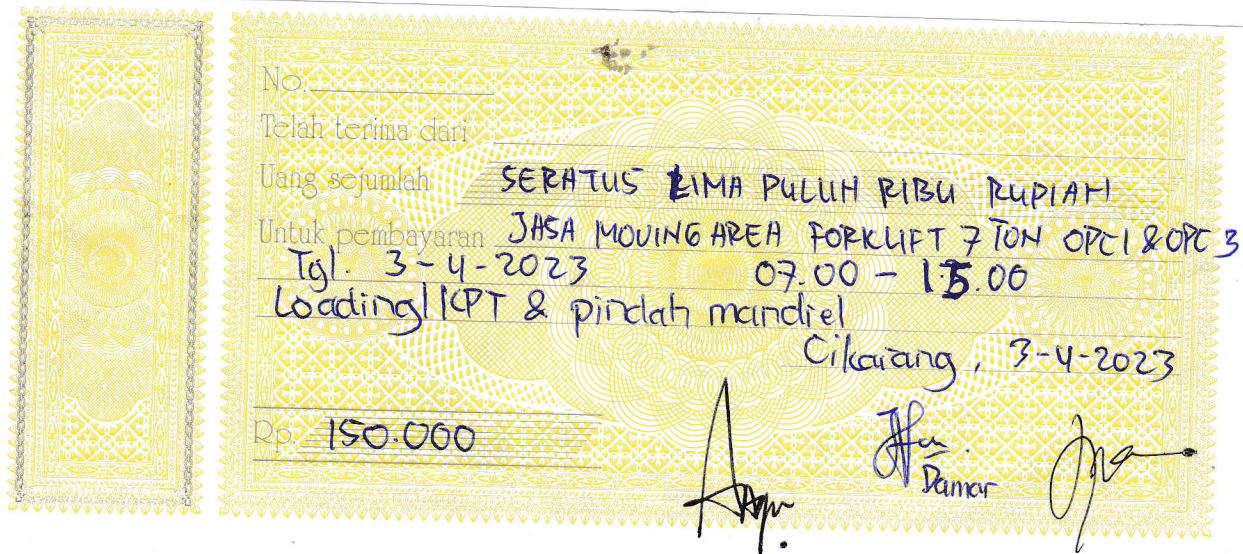 No.
Telah terima dari
Uang sejumlah SERATUS LIMA PULUH RIBU RUPIAH
Untuk pembayaran JASA MOVING AREA FORKLIFT 7 TON OPC1 & OPC 3
Tgl. 3-4-2023 07.00 - 15.00
Loading KPT & pindah mandiel
Cikarang, 3-4-2023
Rp. 150.000
Damar